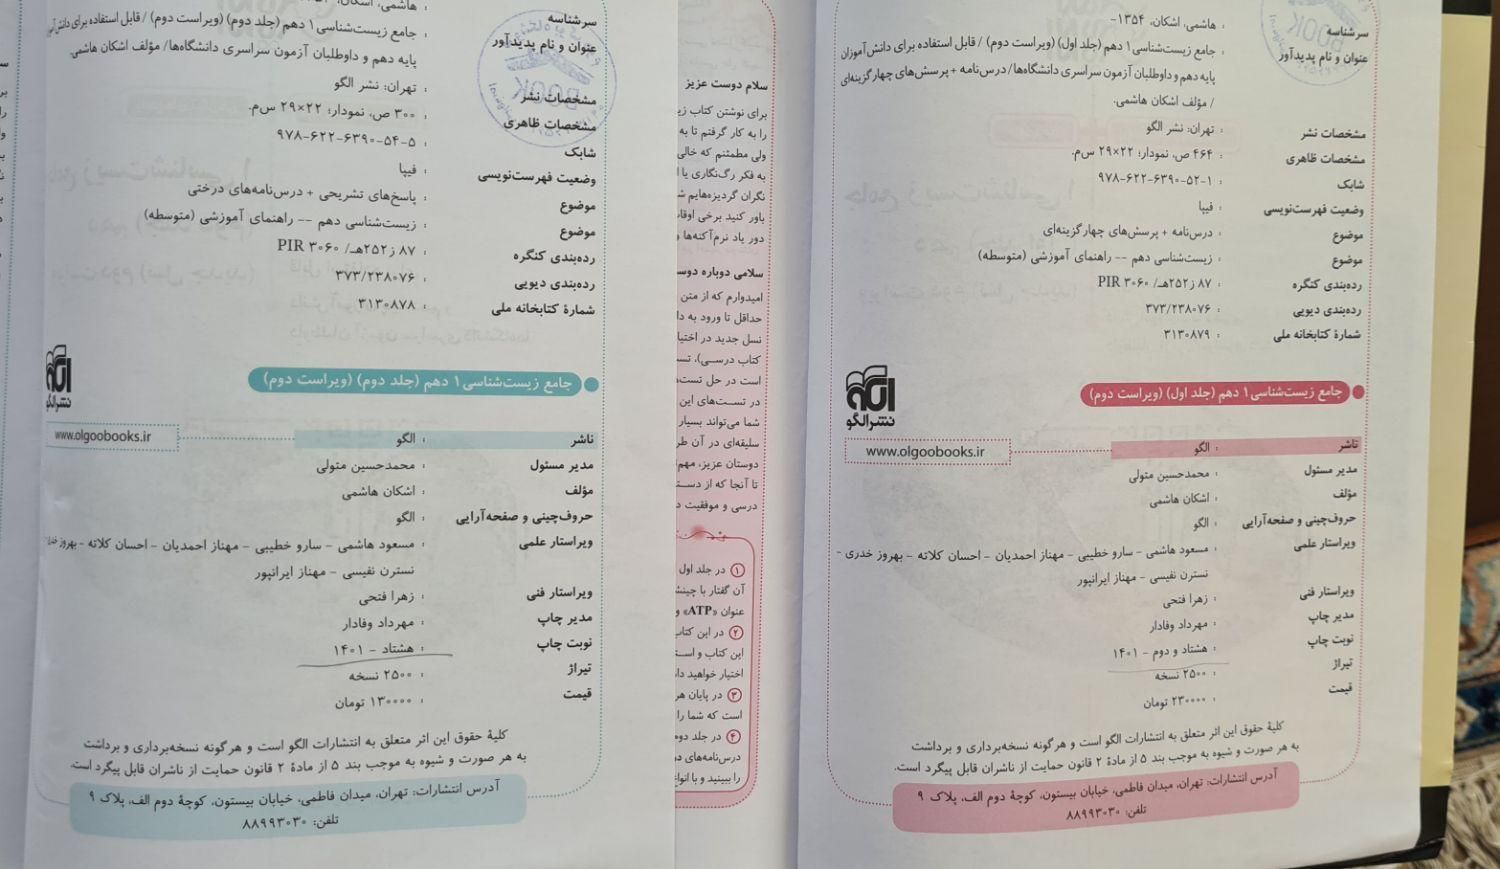 هاشمی، اشکان، ۱۳۵۴-
سرشناسه :
عنوان و نام پدیدآور : جامع زیست‌شناسی ۱ دهم (جلد اول) (ویراست دوم) / قابل استفاده برای دانش‌آموزان
پایه دهم و داوطلبان آزمون سراسری دانشگاه‌ها/ درس‌نامه + پرسش‌های چهارگزینه‌ای
/ مؤلف اشکان هاشمی.
مشخصات نشر : تهران: نشر الگو
مشخصات ظاهری : ۴۶۴ ص، نمودار؛ ۲۲×۲۹ س‌م.
شابک : ۹۷۸-۶۲۲-۶۳۹۰-۵۲-۱
وضعیت فهرست‌نویسی : فیپا
موضوع : درس‌نامه + پرسش‌های چهارگزینه‌ای
موضوع : زیست‌شناسی دهم -- راهنمای آموزشی (متوسطه)
رده‌بندی کنگره : ۸۷ ز۲۵۲هـ/ ۳۰۶۰ PIR
رده‌بندی دیویی : ۳۷۳/۲۳۸۰۷۶
شمارهٔ کتابخانه ملی : ۳۱۳۰۸۷۹
جامع زیست‌شناسی ۱ دهم (جلد اول) (ویراست دوم)
نشرالگو
www.olgoobooks.ir
ناشر : الگو
مدیر مسئول : محمدحسین متولی
مؤلف : اشکان هاشمی
حروف‌چینی و صفحه‌آرایی : الگو
ویراستار علمی : مسعود هاشمی - سارو خطیبی - مهناز احمدیان - احسان کلاته - بهروز خدری -
نسترن نفیسی - مهناز ایرانپور
ویراستار فنی : زهرا فتحی
مدیر چاپ : مهرداد وفادار
نوبت چاپ : هشتاد و دوم - ۱۴۰۱
تیراژ : ۲۵۰۰ نسخه
قیمت : ۲۳۰۰۰۰ تومان
کلیهٔ حقوق این اثر متعلق به انتشارات الگو است و هرگونه نسخه‌برداری و برداشت
به هر صورت و شیوه به موجب بند ۵ از مادهٔ ۲ قانون حمایت از ناشران قابل پیگرد است.
آدرس انتشارات: تهران، میدان فاطمی، خیابان بیستون، کوچهٔ دوم الف، پلاک ۹
تلفن: ۸۸۹۹۳۰۳۰
سلام دوست عزیز
برای نوشتن کتاب
را به کار گرفتم تا به
ولی مطمئنم که خالی
به فکر رگ‌نگاری یا
نگران گردیزه‌هایم
باور کنید برخی
دور یاد نرم‌آکنه‌ها و
سلامی دوباره
امیدوارم که از متن
حداقل تا ورود به
نسل جدید در
کتاب درسی)،
است در حل
در تست‌های این
شما می‌تواند بسیار
سلیقه‌ای در آن
دوستان عزیز،
تا آنجا که از
درسی و موفقیت
۱ در جلد اول
آن گفتار با
عنوان «ATP» و
۲ در این
این کتاب و
اختیار خواهید
۳ در پایان هر
است که شما را
۴ در جلد دوم
درس‌نامه‌های
را ببینید و با
هاشمی، اشکان،
سرشناسه :
عنوان و نام پدیدآور : جامع زیست‌شناسی ۱ دهم (جلد دوم) (ویراست دوم) / قابل استفاده برای
پایه دهم و داوطلبان آزمون سراسری دانشگاه‌ها/ مؤلف اشکان هاشمی.
مشخصات نشر : تهران: نشر الگو
مشخصات ظاهری : ۳۰۰ ص، نمودار؛ ۲۲×۲۹ س‌م.
شابک : ۹۷۸-۶۲۲-۶۳۹۰-۵۴-۵
وضعیت فهرست‌نویسی : فیپا
موضوع : پاسخ‌های تشریحی + درس‌نامه‌های درختی
موضوع : زیست‌شناسی دهم -- راهنمای آموزشی (متوسطه)
رده‌بندی کنگره : ۸۷ ز۲۵۲هـ/ ۳۰۶۰ PIR
رده‌بندی دیویی : ۳۷۳/۲۳۸۰۷۶
شمارهٔ کتابخانه ملی : ۳۱۳۰۸۷۸
BOOK
جامع زیست‌شناسی ۱ دهم (جلد دوم) (ویراست دوم)
نشرالگو
www.olgoobooks.ir
ناشر : الگو
مدیر مسئول : محمدحسین متولی
مؤلف : اشکان هاشمی
حروف‌چینی و صفحه‌آرایی : الگو
ویراستار علمی : مسعود هاشمی - سارو خطیبی - مهناز احمدیان - احسان کلاته - بهروز
نسترن نفیسی - مهناز ایرانپور
ویراستار فنی : زهرا فتحی
مدیر چاپ : مهرداد وفادار
نوبت چاپ : هشتاد - ۱۴۰۱
تیراژ : ۲۵۰۰ نسخه
قیمت : ۱۳۰۰۰۰ تومان
کلیهٔ حقوق این اثر متعلق به انتشارات الگو است و هرگونه نسخه‌برداری و برداشت
به هر صورت و شیوه به موجب بند ۵ از مادهٔ ۲ قانون حمایت از ناشران قابل پیگرد است.
آدرس انتشارات: تهران، میدان فاطمی، خیابان بیستون، کوچهٔ دوم الف، پلاک ۹
تلفن: ۸۸۹۹۳۰۳۰